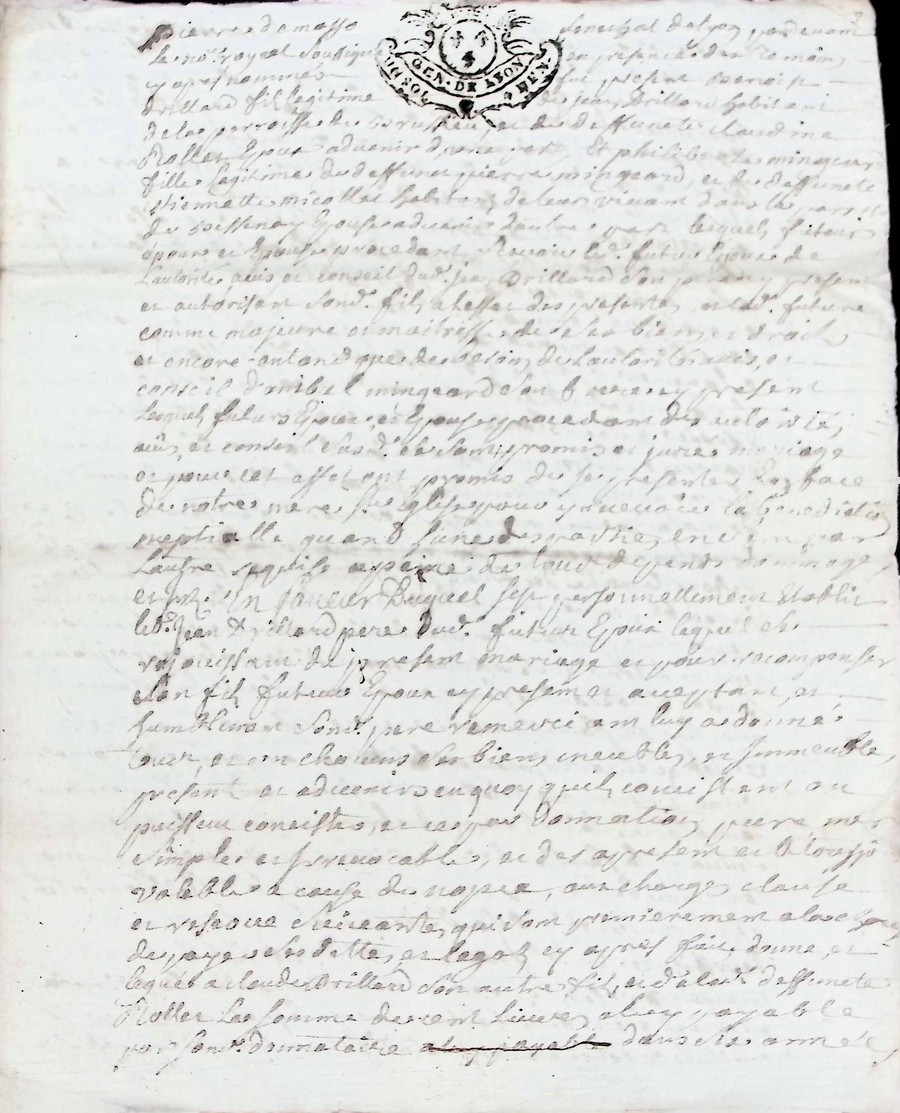 Pierre damasso senechal de lyon pardevant
le not.re royal soussigné en presence des temoins
cy apres nommes fut present Benoist
GEN. DE LYON
Drillard fils legitime de jean Drillard habitant
de la parroisse de et de deffuncte claudine
Rollet Epoux advenir d'une part, Et philiberte mingeard
fille legitime de deffunct pierre mingeard, et de deffuncte
Etiennette micollet habitant de leur vivant dans la parroisse
de Epouse advenir dautre part lesquels futeurs
époux et Epouse procedant scavoir led. futur Epoux de
Lautorité avis et conseil dud. jean Drillard son pere cy present
et autorisant sond. fils a leffet des presentes, et lad. future
comme majeure et maitresse de ses biens et droits
et encore en tant que de besoin de Lautorité avis, et
conseil d'anibal mingeard son frere cy present
Lesquels futurs Epoux, et Epouse procedant des autorités,
avis, et conseil susd. se sont promis et juré mariage
et pour cet effet ont promis de se presenter En face
de notre mere s.te eglise pour y recevoir la benediction
nuptialle quand l'une des parties en sera par
Lautre requise a peine de tous depends dommages,
et En faveur Duquel sest personnellement Etablit
led. Jean Drillard pere dud. futur Epoux lequel se
rejouissant du present mariage et pour recompenser
son fils futur Epoux cy present et aceptant, et
humblement sond. pere remerciant luy a donné
tous, et un chacuns ses biens meubles, et Immeubles,
presents et advenirs en quoy quils consistent ou
puissent consister, et ce par donnation pure
simple et Irrevocable, et des apresent et a toujours
valable a cause de nopces, aux charges clause
et reserve suivante, qui sont premierement a la charge
de payer ses dettes, et legats cy apres fait, donne, et
legue a claude Drillard son autre fils, et de lad. deffuncte
Rollet La somme de cent livres, a luy payable
par sond. donnataire a luy payable dans six année,